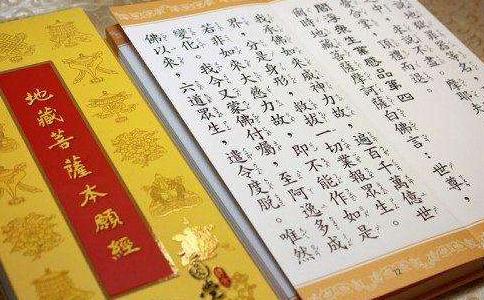 地藏菩薩本願經
說不盡。摩耶夫
合掌，頂禮而退。
閻浮眾生業感品第四
爾時地藏菩薩摩訶薩白佛言：世尊，
我承佛如來威神力故，遍百千萬億世
界，分是身形，救拔一切業報眾生。
若非如來大慈力故，即不能作如是
變化。我今又蒙佛付囑，至阿逸多成
佛以來，六道眾生，遣令度脫。唯然
12